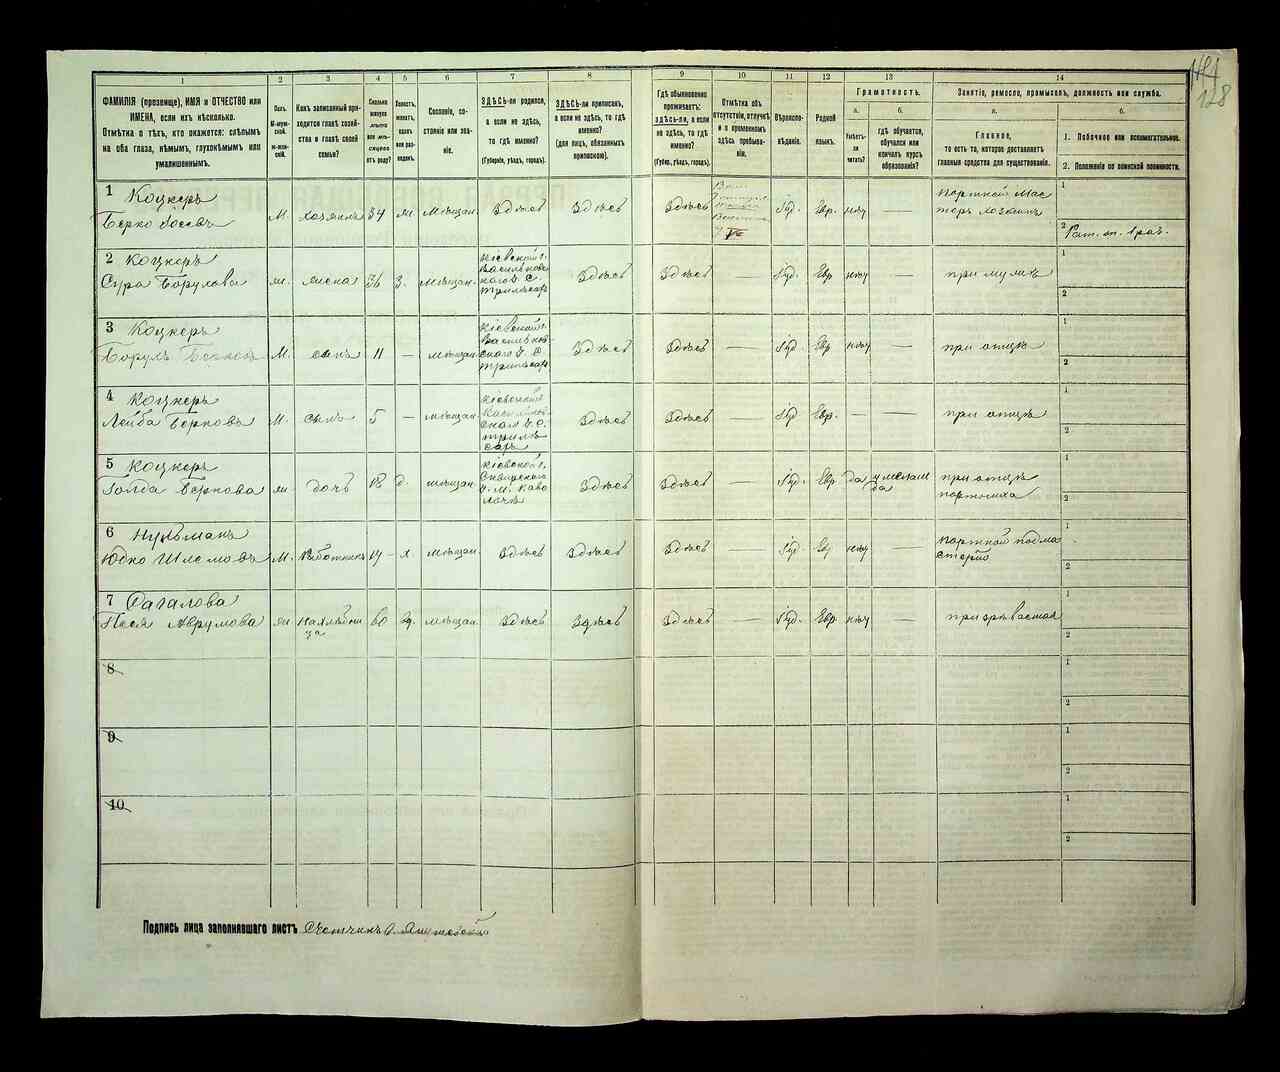 128
1
2
3
4
5
6
7
8
9
10
11
12
13
14
ФАМИЛІЯ (прозвище), ИМЯ и ОТЧЕСТВО или ИМЕНА, если ихъ нѣсколько.
Отмѣтка о тѣхъ, кто окажется: слѣпымъ на оба глаза, нѣмымъ, глухонѣмымъ или умалишеннымъ.
Полъ.
М-мужской.
ж-женскій.
Какъ записанный приходится главѣ хозяйства и главѣ своей семьи?
Сколько минуло лѣтъ или мѣсяцевъ отъ роду?
Холостъ, женатъ, вдовъ или разведенъ.
Сословіе, состояніе или званіе.
ЗДѢСЬ-ли родился,
а если не здѣсь,
то гдѣ именно?
(Губернія, уѣздъ, городъ).
ЗДѢСЬ-ли приписанъ,
а если не здѣсь, то гдѣ именно?
(для лицъ, обязанныхъ припискою).
Гдѣ обыкновенно проживаетъ:
здѣсь-ли, а если не здѣсь, то гдѣ именно?
(Губер., уѣздъ, городъ).
Отмѣтка объ отсутствіи, отлучкѣ и о временномъ здѣсь пребываніи.
Вѣроисповѣданіе.
Родной языкъ.
Грамотность.
а.
Умѣетъ-ли читать?
б.
гдѣ обучается, обучался или кончилъ курсъ образованія?
Занятіе, ремесло, промыселъ, должность или служба.
а.
Главное,
то есть то, которое доставляетъ главныя средства для существованія.
б.
1. Побочное или вспомогательное.
2. Положеніе по воинской повинности.
1 Коцкеръ
Берко Іосевъ М. хозяинъ 34 ж. мѣщан. Здѣсь Здѣсь Здѣсь Іуд. Евр. нѣт — портной мастеръ хозяинъ
1
2 Рат. оп. 1 раз.
2 Коцкеръ
Сура Борулова ж. жена 36 з. мѣщан. Кіевской г. Васильковского у. С. Здѣсь Здѣсь — Іуд. Евр нѣт — при мужѣ
1
2
3 Коцкеръ
Боруль Берковъ М. сынъ 11 — мѣщан Кіевской г. Здѣсь Здѣсь — Іуд. Евр нѣт — при отцѣ
1
2
4 Коцкеръ
Лейба Берковъ М. сынъ 5 — мѣщан. Кіевской Здѣсь Здѣсь — Іуд Евр. — — при отцѣ
1
2
5 Коцкеръ
Голда Беркова ж дочь 18 д. мѣщан. Кіевской г. Здѣсь Здѣсь — Іуд. Евр. да при отцѣ портниха
1
2
6 Нухъманъ
Юдко Шлемовъ М. Работникъ 17 мѣщан. Здѣсь Здѣсь Здѣсь — Іуд Евр нѣт — портной подмастерію
1
2
7 Сагалова
Песя Аврумова ж Нахлѣбница 60 вд. мѣщан. Здѣсь Здѣсь Здѣсь — Іуд. Евр. нѣт —
1
2
8
1
2
9
1
2
10
1
2
Подпись лица заполнявшаго листъ Счетчикъ